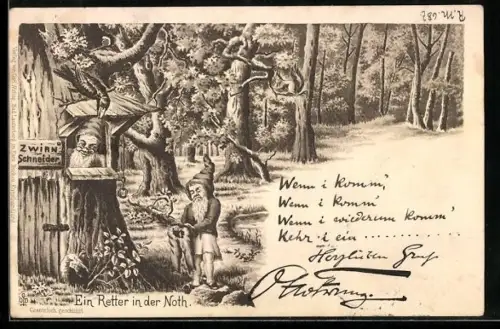 R.M. 687
ZWIRN
Schneider
Wenn i komm',
Wenn i komm'
Wenn i wiederum komm'
Kehr i ein ..........
Herzlichen Gruß
Ein Retter in der Noth.
Gesetzlich geschützt